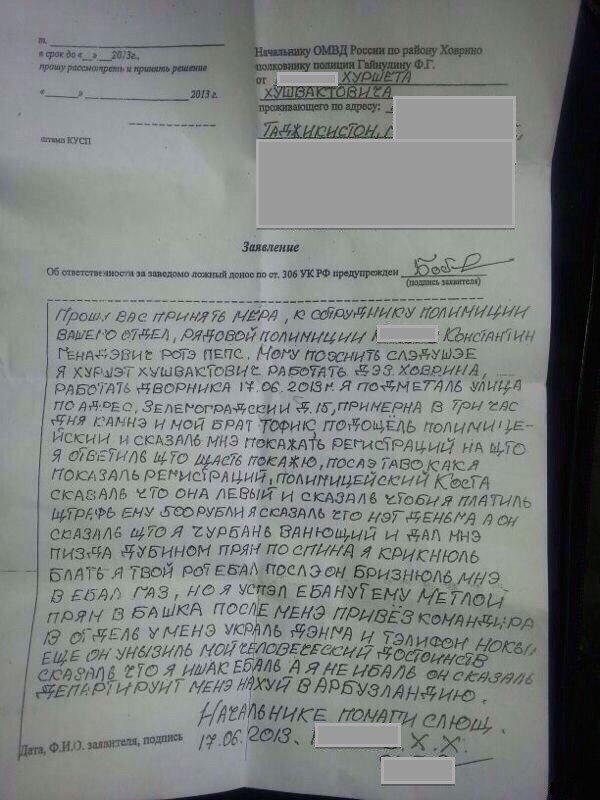 т.
в срок до «__» ___2013г.,
прошу рассмотреть и принять решение
«______» ____________________ 2013 г.
штамп КУСП
Начальнику ОМВД России по району Ховрино
полковнику полиции Гайнулину Ф.Г.
от ХУРШЕТА
ХУШВАКТОВИЧА
проживающего по адресу:
ТАДЖИКИСТОН,
Заявление
Об ответственности за заведомо ложный донос по ст. 306 УК РФ предупрежден
(подпись заявителя)
ПРОШУ ВАС ПРИНЯТЬ МЕРА, К СОТРУДНИКУ ПОЛИМИЦИИ
ВАШЕГО ОТДЕЛ, РЯДОВОЙ ПОЛИМИЦИИ КОНСТАНТИН
ГЕНАДЭВИЧ РОТЭ ПЕПС. МОМУ ПОЭНИТЬ СЛЭДУШЭЕ
Я ХУРШЭТ ХУШВАКТОВИЧ РАБОТАТЬ ДЭЗ ХОВРИНА,
РАБОТАТЬ ДВОРНИКА 17.06.2013М. Я ПОДМЕТАЛЬ УЛИЦА
ПО АДРЕС, ЗЕЛЕМОГРАДСКИИ Д.15, ПРИМЕРНА В ТРИ ЧАС
ДНЯ КАМНЭ И МОЙ БРАТ ТОФИК ПОДОЩЁЛЬ ПОЛИМИЦЕ-
ЙСКИИ И СКАЗАЛЬ МНЭ ПОКАЖАТЬ РЕГИСТРАЦИЙ НА ЩТО
Я ОТВЕТИЛЬ ЩТО ЩАСТЬ ПОКАЖЮ, ПОСЛЭ ТАВО КАК Я
ПОКАЗАЛЬ РЕМИСТРАЦИЙ, ПОЛИМИЦЕЙСКИЙ КОСТА
СКАЗАЛЬ ЧТО ОНА ЛЕВЫЙ И СКАЗАЛЬ ЧТОБИ Я ПЛАТИЛЬ
ЩТРАФЬ ЕМУ 500 РУБЛИ Я СКАЗАЛЬ ЧТО НЭТ ДЕНЬМА А ОН
СКАЗАЛЬ ЩТО Я ЧУРБАНЬ ВАНЮЩИЙ И ДАЛ МНЭ
ПИЗДА ДУБИНОМ ПРЯМ ПО СПИНА Я КРИКНЮЛЬ
БЛАТЬ Я ТВОЙ РОТ ЕБАЛ ПОСЛЭ ОН БРИЗНЮЛЬ МНЭ
В ЕБАЛ ГАЗ, НО Я УСПЭЛ ЕБАНУТ ЕМУ МЕТЛОЙ
ПРЯМ В БАШКА ПОСЛЕ МЕНЭ ПРИВЁЗ КОМАНДИРА
В ОТДЕЛЬ У МЕНЭ УКРАЛЬ ДЭНМА И ТЭЛИФОН НОКЫ
ЕЩЕ ОН УНЫЗИЛЬ МОЙ ЧЕЛОВЕЧЕСКИЙ ДОСТОИНСТВ
СКАЗАЛЬ ЧТО Я ИШАК ЕБАЛЬ А Я НЕ ИБАЛЬ ОН СКАЗАЛЬ
ДЕПАРТИРУИТ МЕНЭ НАХУЙ В АРБУЗЛАНДИЮ.
НАЧАЛЬНИКЕ ПОМАГИ СЛЮЩ.
Дата, Ф.И.О. заявителя, подпись
17.06.2013. Х.Х.